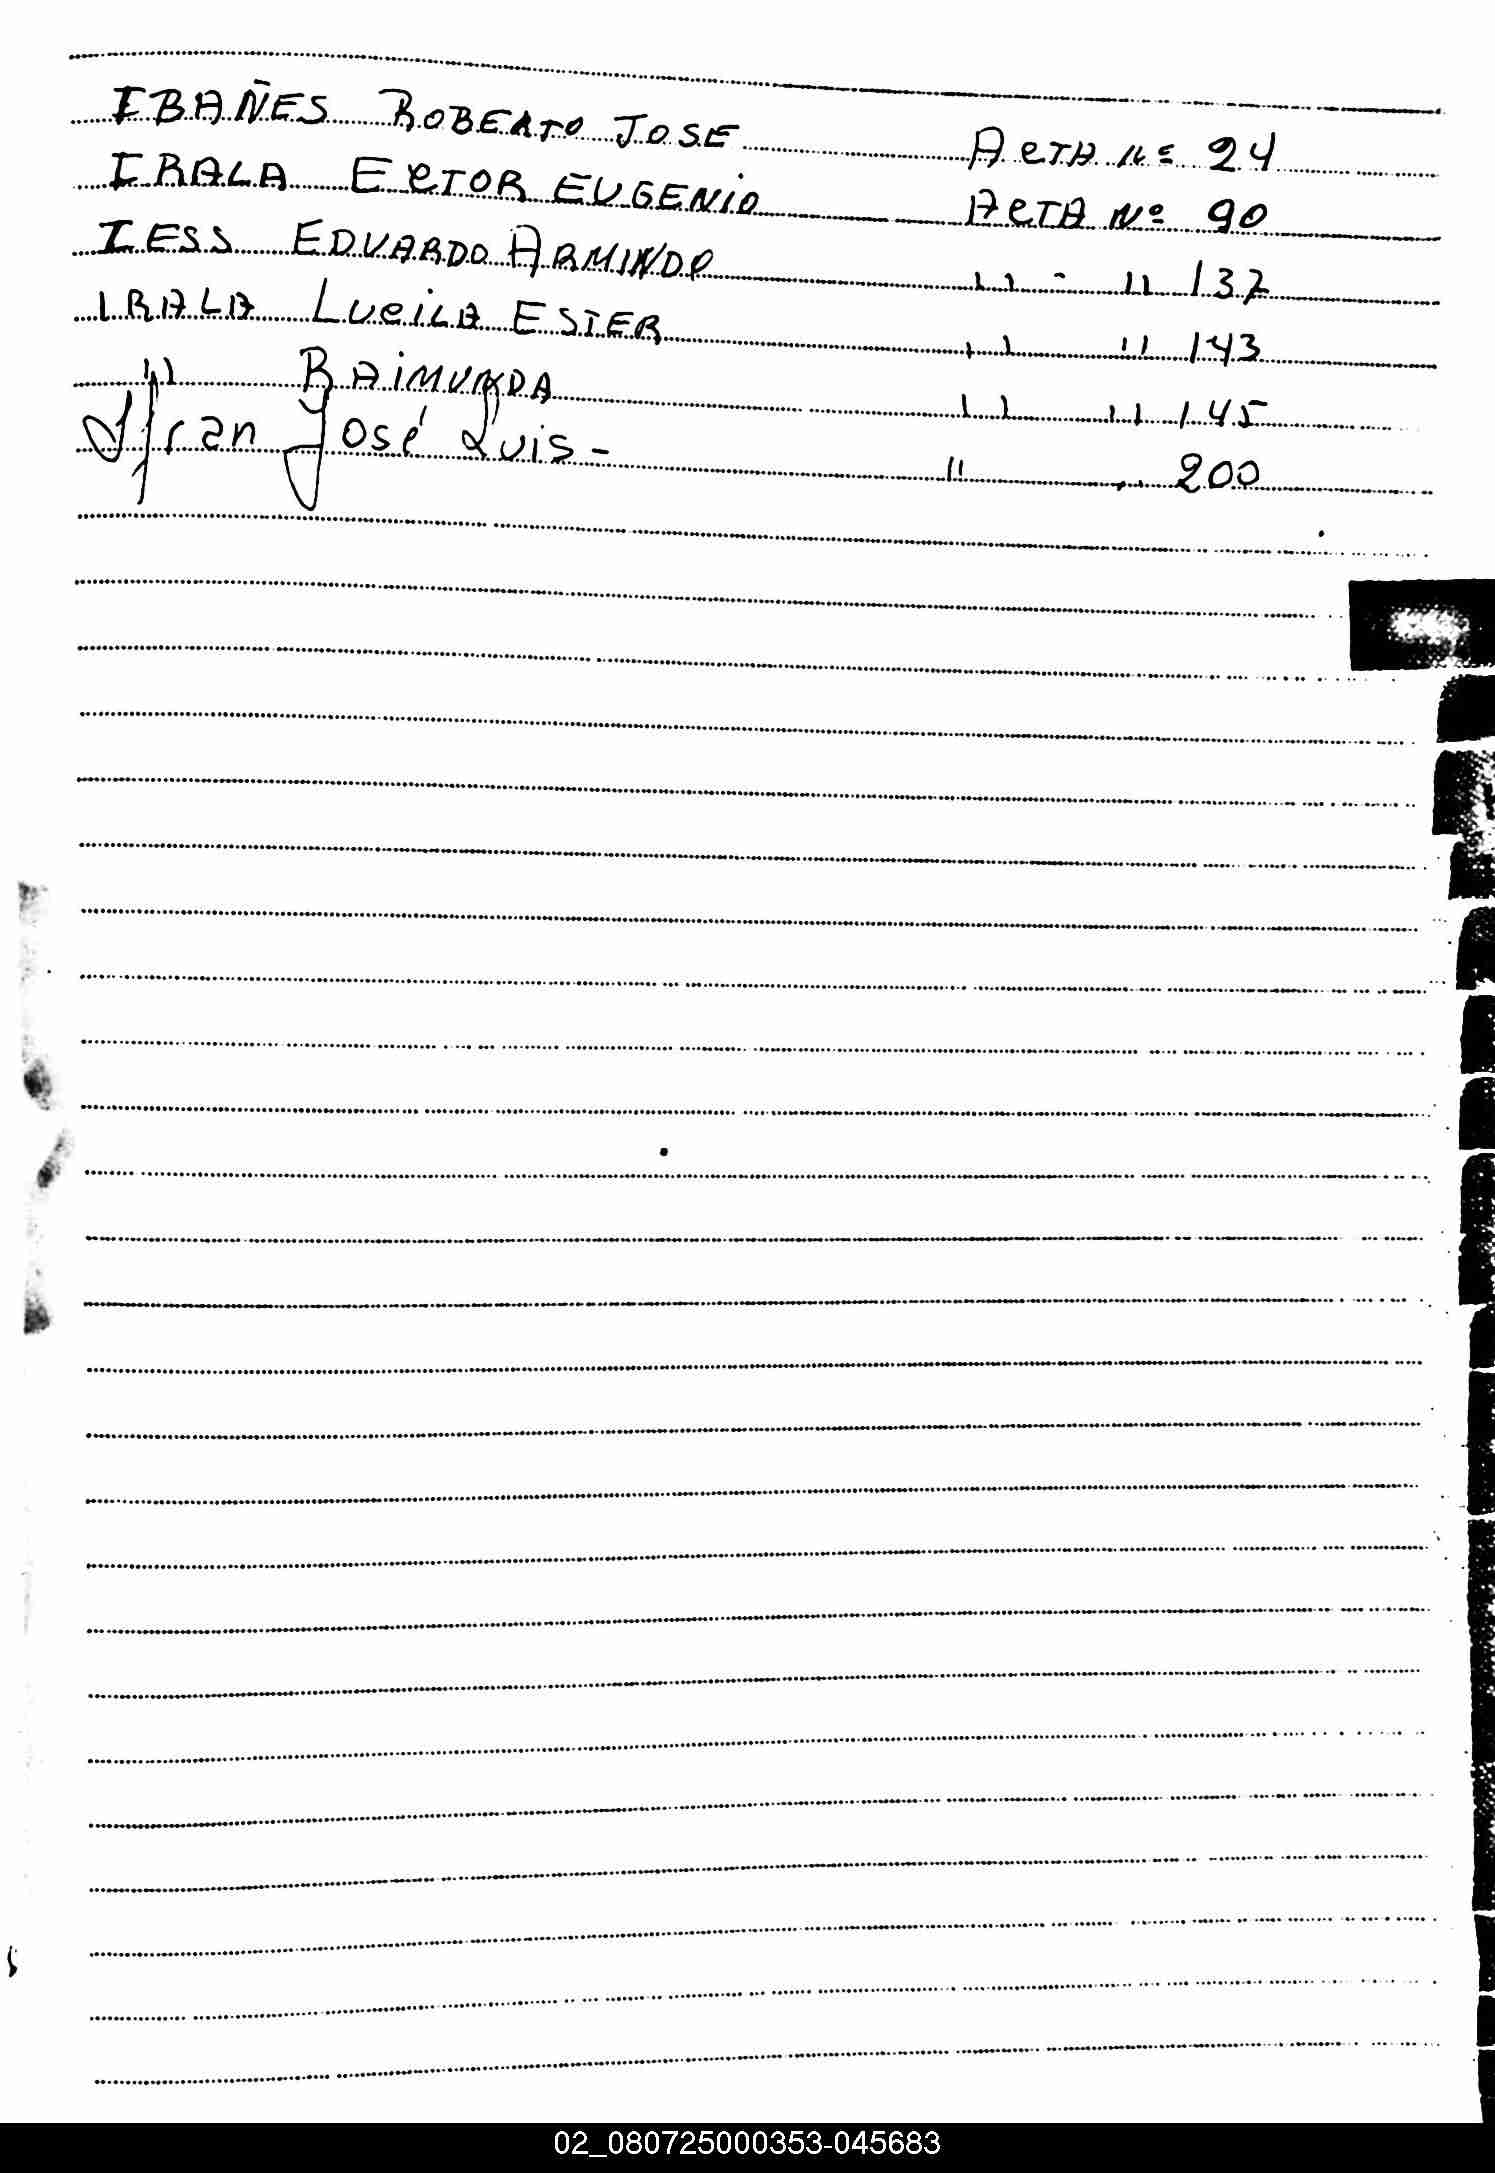 IBAÑES ROBERTO JOSE ACTA Nº 24
IRALA ECTOR EUGENIO ACTA Nº 90
IESS EDUARDO ARMINDO '' - '' 137
IRALA LUCILA ESTER '' '' 143
'' RAIMUNDA '' '' 145
Ifran José Luis - '' '' 200
02_080725000353-045683